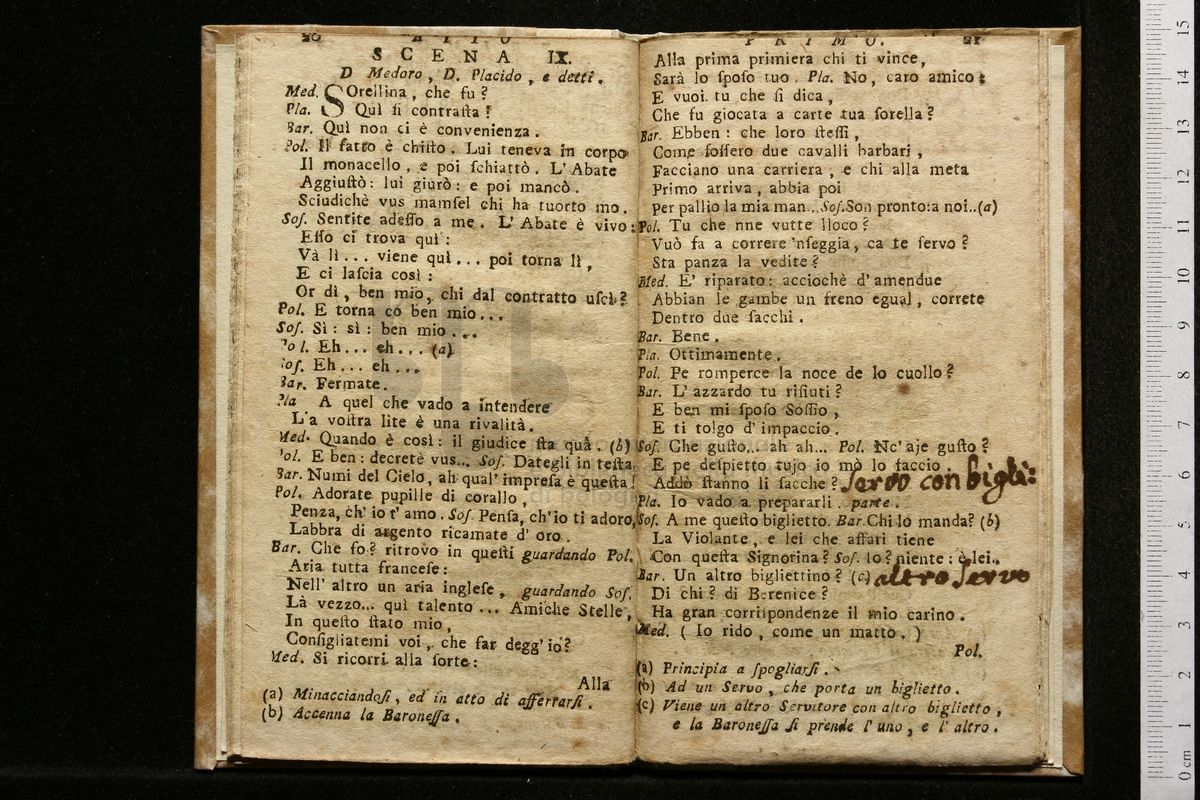 20 ATTO
SCENA IX.
D Medoro, D. Placido, e detti.
Med. SOrellina, che fu?
Pla. Quì si contrasta!
Bar. Quì non ci è convenienza.
Pol. Il fatto è chisto. Lui teneva in corpo
Il monacello, e poi schiattò. L'Abate
Aggiustò: lui giurò: e poi mancò.
Sciudichè vus mamsel chi ha tuorto mo.
Sos. Sentite adesso a me. L'Abate è vivo:
Esso ci trova quì:
Và lì... viene quì... poi torna lì,
E ci lascia così:
Or dì, ben mio, chi dal contratto uscì?
Pol. E torna co ben mio...
Sos. Sì: sì: ben mio...
Pol. Eh... eh... (a)
Sos. Eh... eh...
Bar. Fermate.
Pla A quel che vado a intendere
La vostra lite è una rivalità.
Med. Quando è così: il giudice sta quà. (b)
Pol. E ben: decretè vus... Sos. Dategli in testa
Bar. Numi del Cielo, ah qual' impresa è questa!
Pol. Adorate pupille di corallo,
Penza, ch'io t'amo. Sos. Pensa, ch'io ti adoro,
Labbra di argento ricamate d'oro.
Bar. Che so? ritrovo in questi guardando Pol.
Aria tutta francese:
Nell' altro un aria inglese, guardando Sos.
Là vezzo... quì talento... Amiche Stelle,
In questo stato mio,
Consigliatemi voi, che far degg' io?
Med. Si ricorri alla sorte:
Alla
(a) Minacciandosi, ed in atto di afferrarsi.
(b) Accenna la Baronessa.
PRIMO. 21
Alla prima primiera chi ti vince,
Sarà lo sposo tuo. Pla. No, caro amico:
E vuoi tu che si dica,
Che fu giocata a carte tua sorella?
Bar. Ebben: che loro stessi,
Come fossero due cavalli barbari,
Facciano una carriera, e chi alla meta
Primo arriva, abbia poi
Per pallio la mia man.. Sos. Son pronto: a noi..(a)
Pol. Tu che nne vutte lloco?
Vuò fa a correre 'nseggia, ca te servo?
Sta panza la vedite?
Med. E' riparato: acciochè d'amendue
Abbian le gambe un freno egual, correte
Dentro due sacchi.
Bar. Bene.
Pla. Ottimamente.
Pol. Pe romperce la noce de lo cuollo?
Bar. L'azzardo tu rifiuti?
E ben mi sposo Sossio,
E ti tolgo d'impaccio.
Sos. Che gusto... ah ah... Pol. Nc'aje gusto?
E pe despietto tujo io mò lo faccio.
Addò stanno li sacche? servo con bigli:
Pla. Io vado a prepararli. parte.
Sos. A me questo biglietto. Bar. Chi lo manda? (b)
La Violante, e lei che affari tiene
Con questa Signorina? Sos. Io? niente: è lei..
Bar. Un altro bigliettino? (c) altro servo
Di chi? di Berenice?
Ha gran corrispondenze il mio carino.
Med. (Io rido, come un matto.)
Pol.
(a) Principia a spogliarsi.
(b) Ad un Servo, che porta un biglietto.
(c) Viene un altro Servitore con altro biglietto,
e la Baronessa si prende l'uno, e l'altro.
0 cm 1 2 3 4 5 6 7 8 9 10 11 12 13 14 15